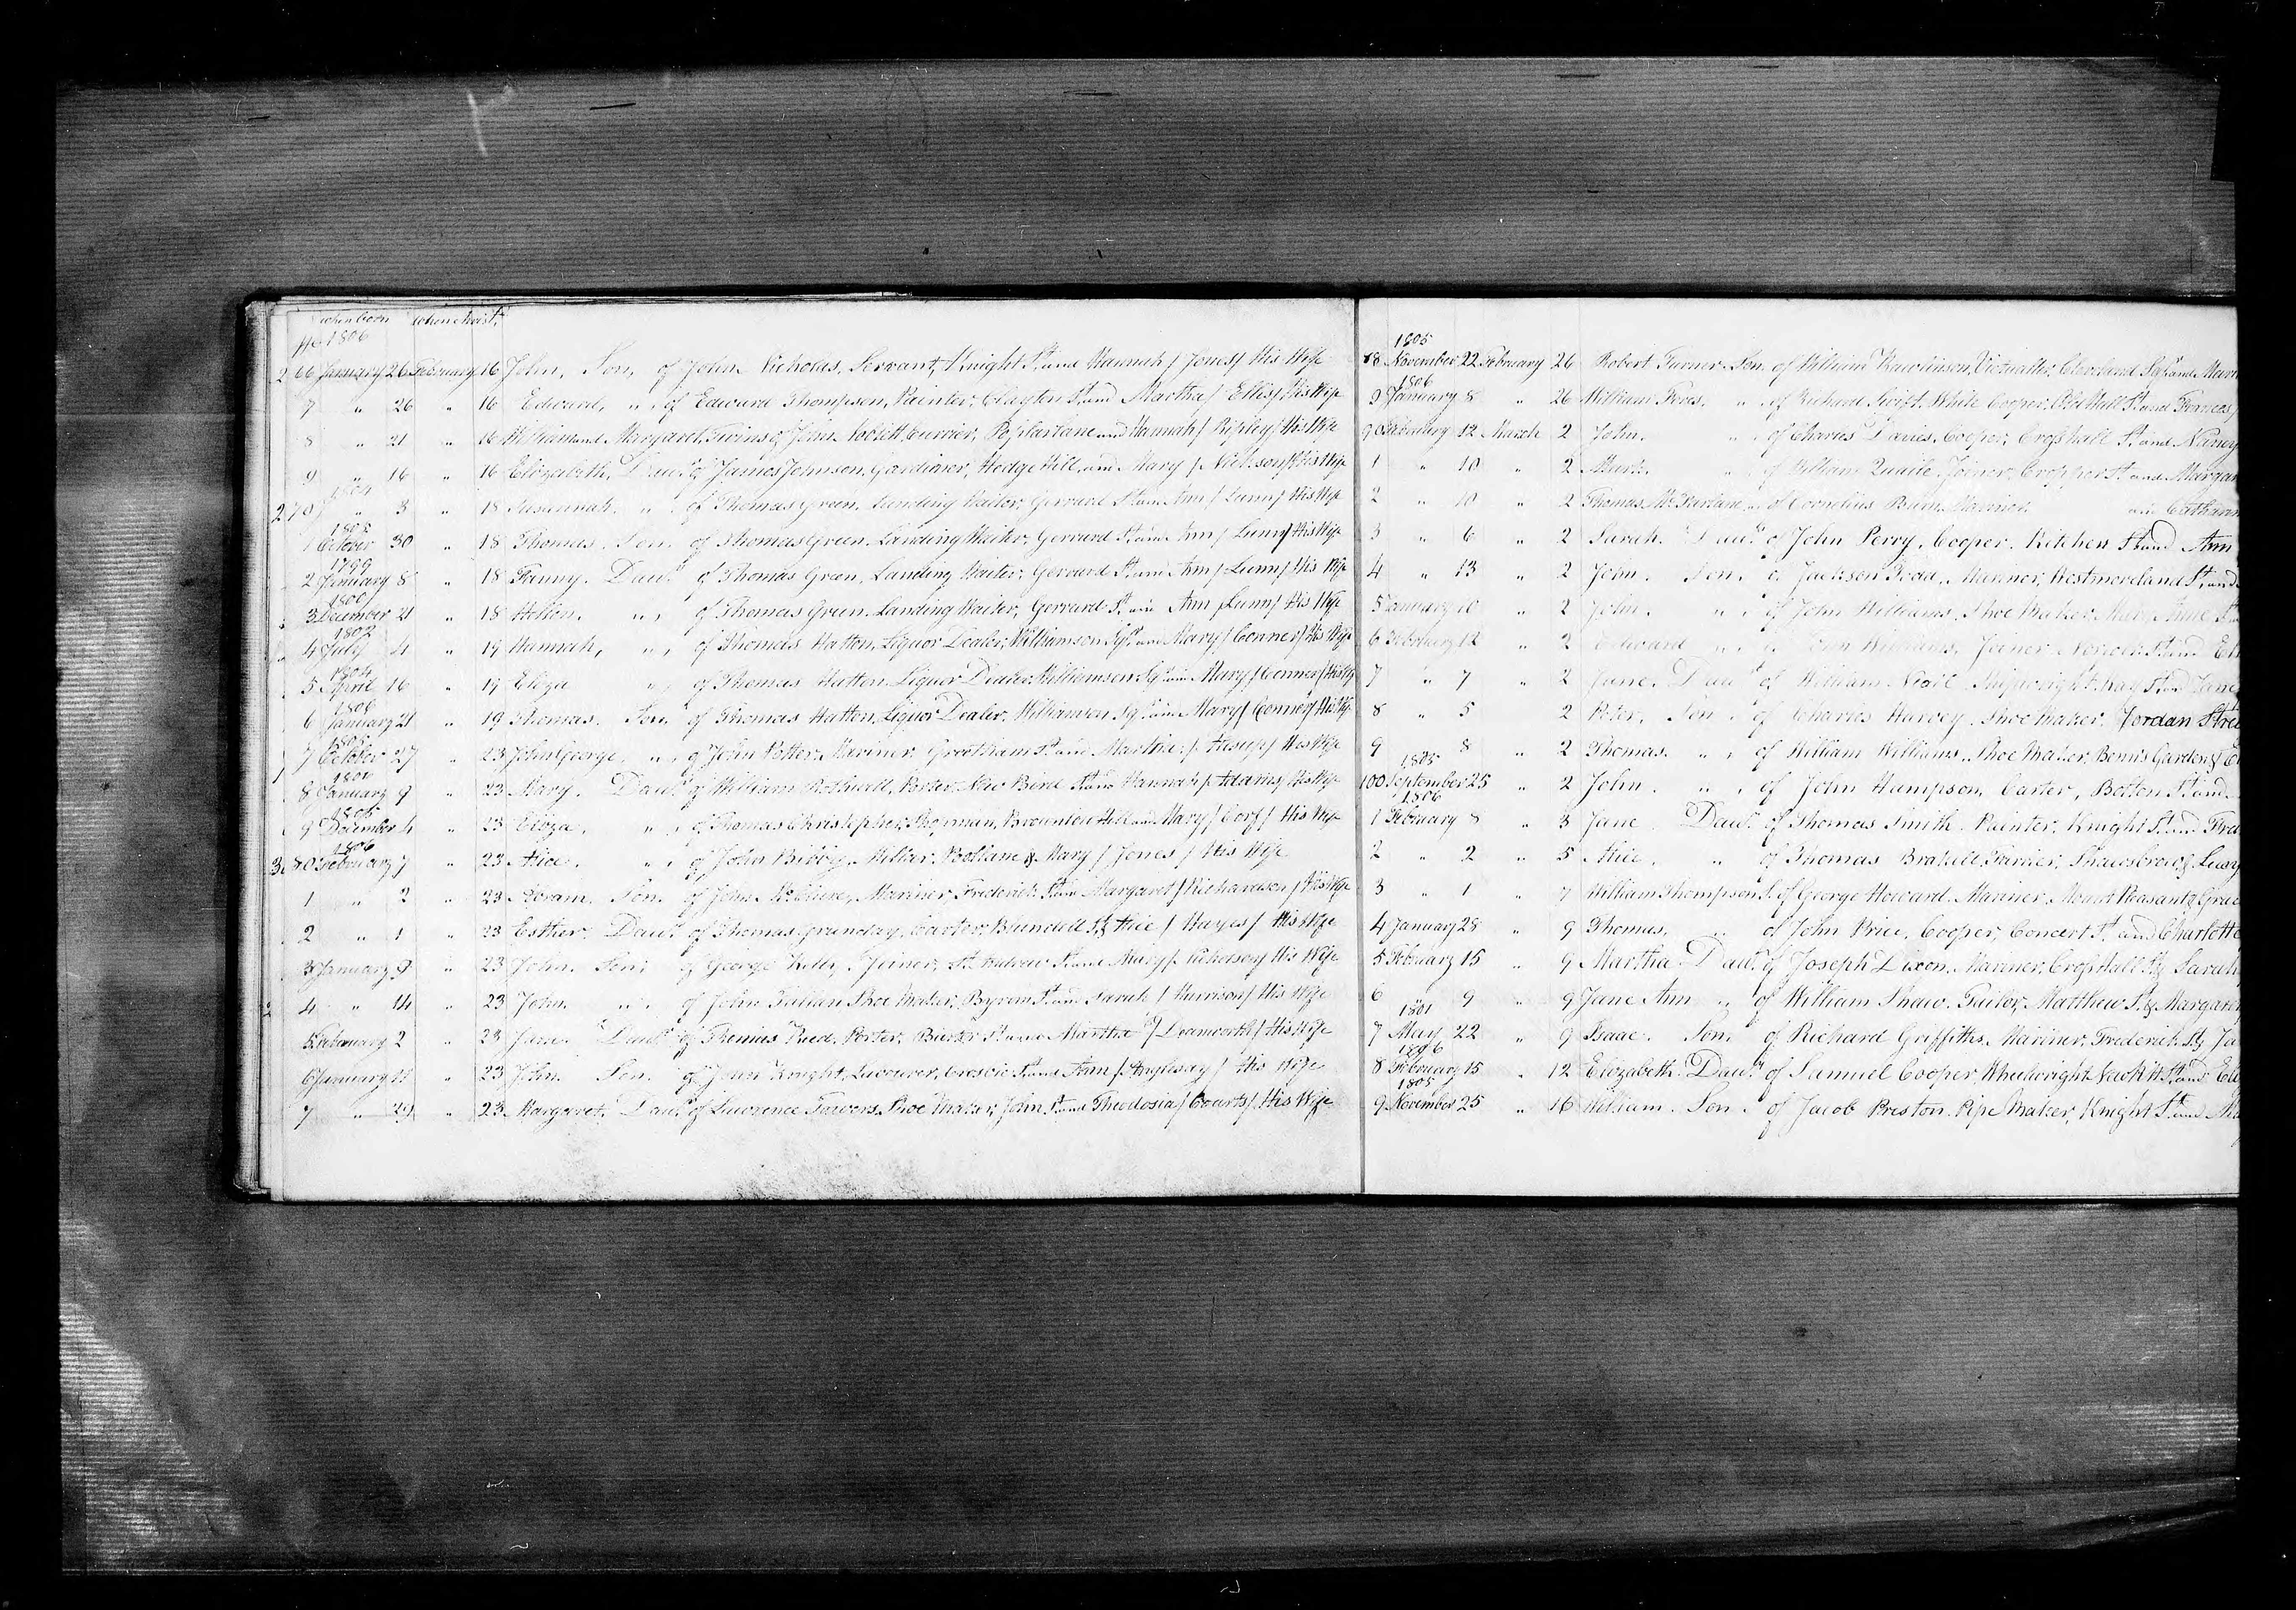 when born when Christ.
No 1806
266 January 26 February 16 John, Son, of John Nicholas, Servant, Knight St. and Hannah / Jones / His Wife
7 " 26 " 16 Edward, " of Edward Thompson, Painter, Clayton St. and Martha / Ellis / His Wife
8 " 21 " 16 William and Margaret, Twins of John Currier, Poplar lane and Hannah / Ripley / His Wife
9 " 16 " 16 Elizabeth, Daur. of James Johnson, Gardiner, Hodge Hill, and Mary / His Wife
1804
270 " 3 " 18 Susannah. " of Thomas Green, Landing Waiter, Gerrard St. and Ann / Lunn / His Wife
1805
1 October 30 " 18 Thomas. Son. of Thomas Green, Landing Waiter, Gerrard St. and Ann / Lunn / His Wife
1799
2 January 8 " 18 Fanny. Daur. of Thomas Green, Landing Waiter, Gerrard St. and Ann / Lunn / His Wife
3 December 21 " 18 " of Thomas Green, Landing Waiter, Gerrard St. and Ann / Lunn / His Wife
1802
4 July 4 " 19 Hannah, " of Thomas Hatton, Liquor Dealer, Williamson Sqr. and Mary / Conner / His Wife
1804
5 April 16 " 19 Eliza " of Thomas Hatton, Liquor Dealer, Williamson Sqr. and Mary / Conner / His Wife
1806
6 January 21 " 19 Thomas. Son. of Thomas Hatton, Liquor Dealer, Williamson Sqr. and Mary / Conner / His Wife
1805
7 October 27 " 23 John George, " of John Potter, Mariner, Grootham St. and Martha / / His Wife
8 January 9 " 23 Mary. Daur. of William Rothwell, Porter, New Bird St. and Hannah / Adams / His Wife
1805
9 December 4 " 23 Eliza. " of Thomas Christopher, Brownlow Hill and Mary / Corf / His Wife
1806
80 February 7 " 23 Alice. " of John Bibby, Miller, Pool lane & Mary / Jones / His Wife
1 " 2 " 23 Abram. Son. of John McClure, Mariner, Frederick St. and Margaret / Richardson / His Wife
2 " 1 " 23 Esther. Daur. of Thomas Grunday, Carter, Blundell St. & Alice / Hayes / His Wife
3 January 9 " 23 John. Son. of George Kelly, Joiner, St. Andrew St. and Mary / Nicholson / His Wife
4 " 14 " 23 John. " of John Shoe Maker, Byrom St. and Sarah / Harrison / His Wife
5 February 2 " 23 Jane. Daur. of Reed, Porter, St. and Martha / / His Wife
6 January 11 " 23 John. Son. of John Knight, Labourer, St. and Ann / Anglesay / His Wife
7 " 29 " 23 Margaret, Daur. of Lawrence Shoe Maker, John St. and Theodosia / Courts / His Wife
1805
88 November 22 February 26 Robert Turner. Son. of William Rawlinson, Victualler, Cleveland Sqr. and Mari
1806
9 January 8 " 26 William " of Richard Swift, White Cooper, Old Hall St. and Frances /
90 February 12 March 2 John. " of Charles Davies, Cooper, Crosshall St. and Nancy
1 " 10 " 2 Mark. " of William Quaile, Joiner, Cropper St. and Margar
2 " 10 " 2 Thomas McFarlane " of Cornelius Mariner and Catharin
3 " 6 " 2 Sarah. Daur. of John Perry, Cooper, Kitchen St. and Ann
4 " 13 " 2 John. Son. of Jackson Todd, Mariner, Westmoreland St. and
5 January 10 " 2 John. " of John Williams, Shoe Maker, Anne St.
6 February 12 " 2 Edward " of John Williams, Joiner, St. and
7 " 7 " 2 Jane. Daur. of William Shipwright, Kay St. and Jane
8 " 5 2 Peter, Son. of Charles Harvey, Shoe Maker, Jordan Stree
9 8 " 2 Thomas. " of William Williams, Shoe Maker, Benn's Garden &
1805
100 September 25 " 2 John. " of John Hampson, Carter, Bolton St. and
1806
1 February 8 " 3 Jane. Daur. of Thomas Smith, Painter, Knight St. and
2 " 2 " 5 Alice. " of Thomas Farrier, Shawsbrow & Lucy
3 " 1 " 7 William Thompson S. of George Howard, Mariner, Mount Pleasant & Grac
4 January 28 " 9 Thomas. " of John Price, Cooper, Concert St. and Charlotte
5 February 15 " 9 Martha. Daur. of Joseph Dixon, Mariner, Cross Hall St. & Sarah
6 9 " 9 Jane Ann " of William Shaw, Tailor, Matthew St. & Margaret
1801
7 May 22 " 9 Isaac. Son. of Richard Griffiths, Mariner, Frederick St. & Ja
1806
8 February 15 " 12 Elizabeth. Daur. of Samuel Cooper, Wheelwright, St. and
1805
9 November 25 " 16 William. Son. of Jacob Preston, Pipe Maker, Knight St. and